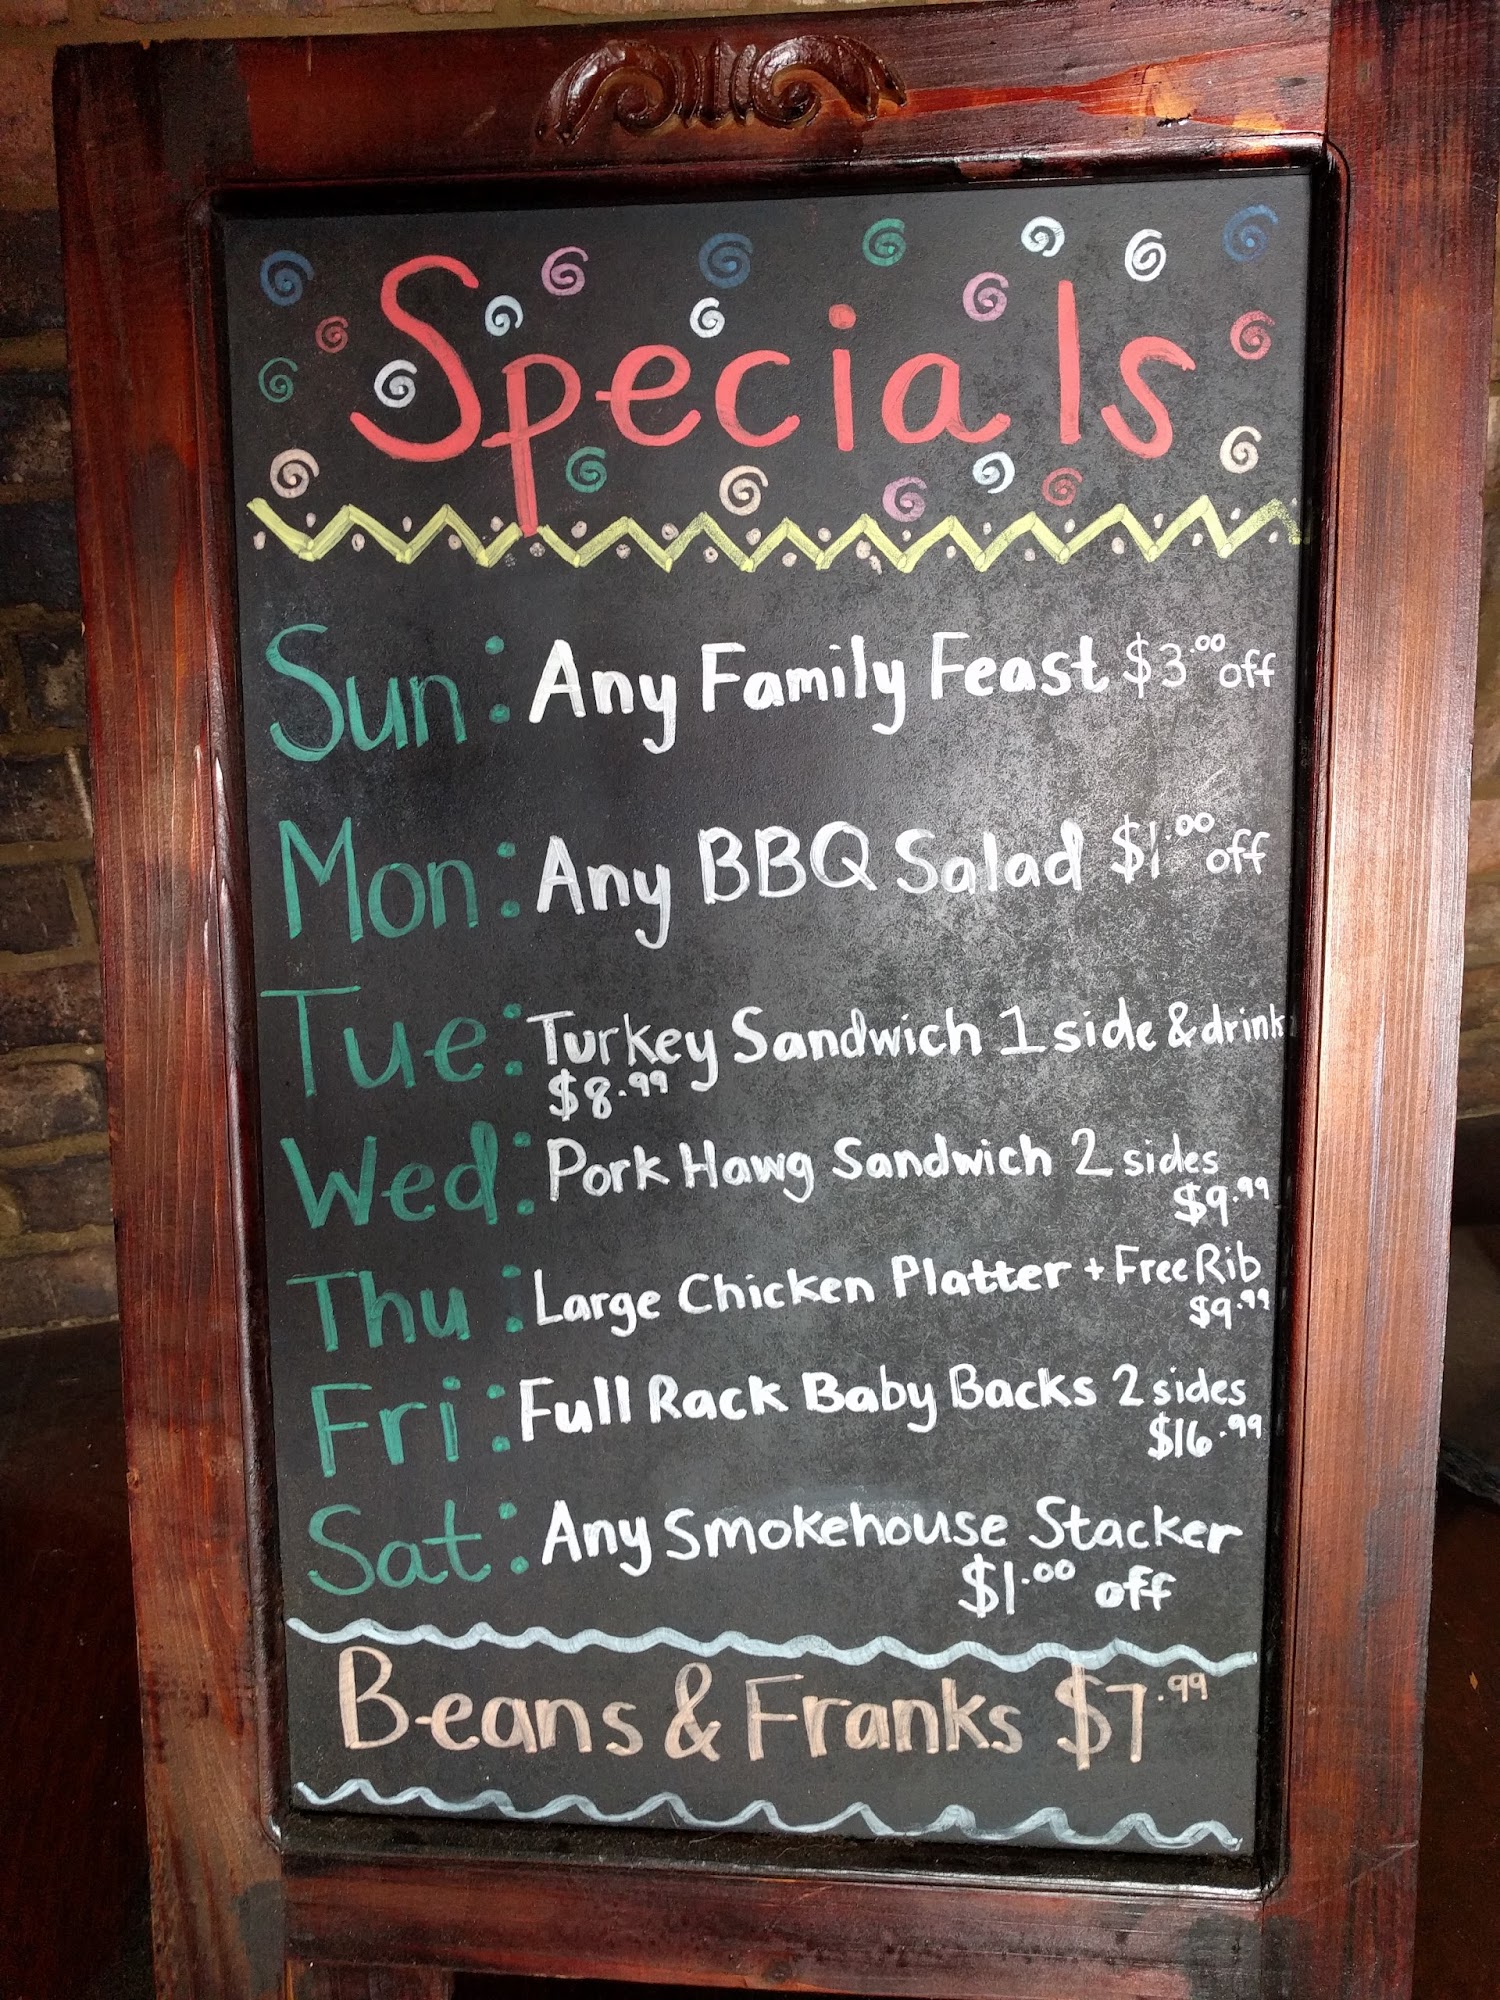 Specials
Sun: Any Family Feast $3.00 off
Mon: Any BBQ Salad $1.00 off
Tue: Turkey Sandwich 1 side & drink
$8.99
Wed: Pork Hawg Sandwich 2 sides
$9.99
Thu: Large Chicken Platter + Free Rib
$9.99
Fri: Full Rack Baby Backs 2 sides
$16.99
Sat: Any Smokehouse Stacker
$1.00 off
Beans & Franks $7.99